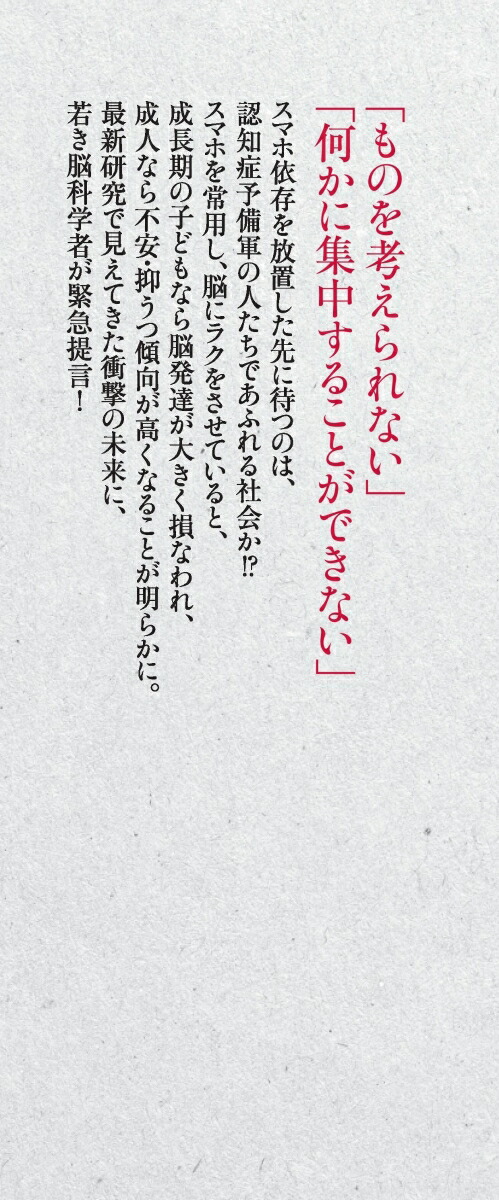 「ものを考えられない」
「何かに集中することができない」
スマホ依存を放置した先に待つのは、
認知症予備軍の人たちであふれる社会か!?
スマホを常用し、脳にラクをさせていると、
成長期の子どもなら脳発達が大きく損なわれ、
成人なら不安・抑うつ傾向が高くなることが明らかに。
最新研究で見えてきた衝撃の未来に、
若き脳科学者が緊急提言！